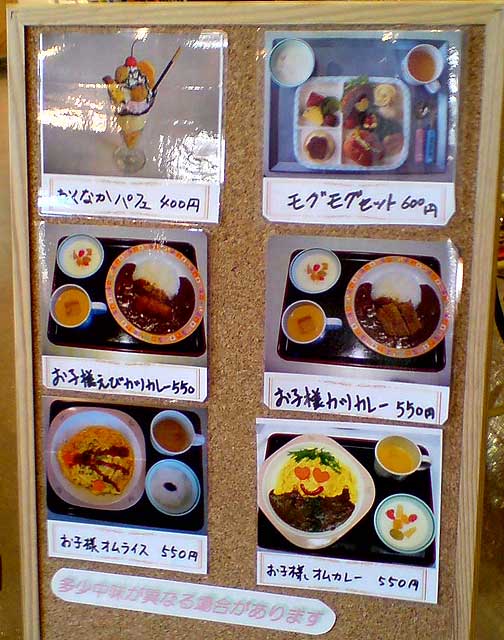 おくなかパフェ 400円
モグモグセット 600円
お子様えびカツカレー 550
お子様カツカレー 550円
お子様オムライス 550円
お子様オムカレー 550円
多少中味が異なる場合があります